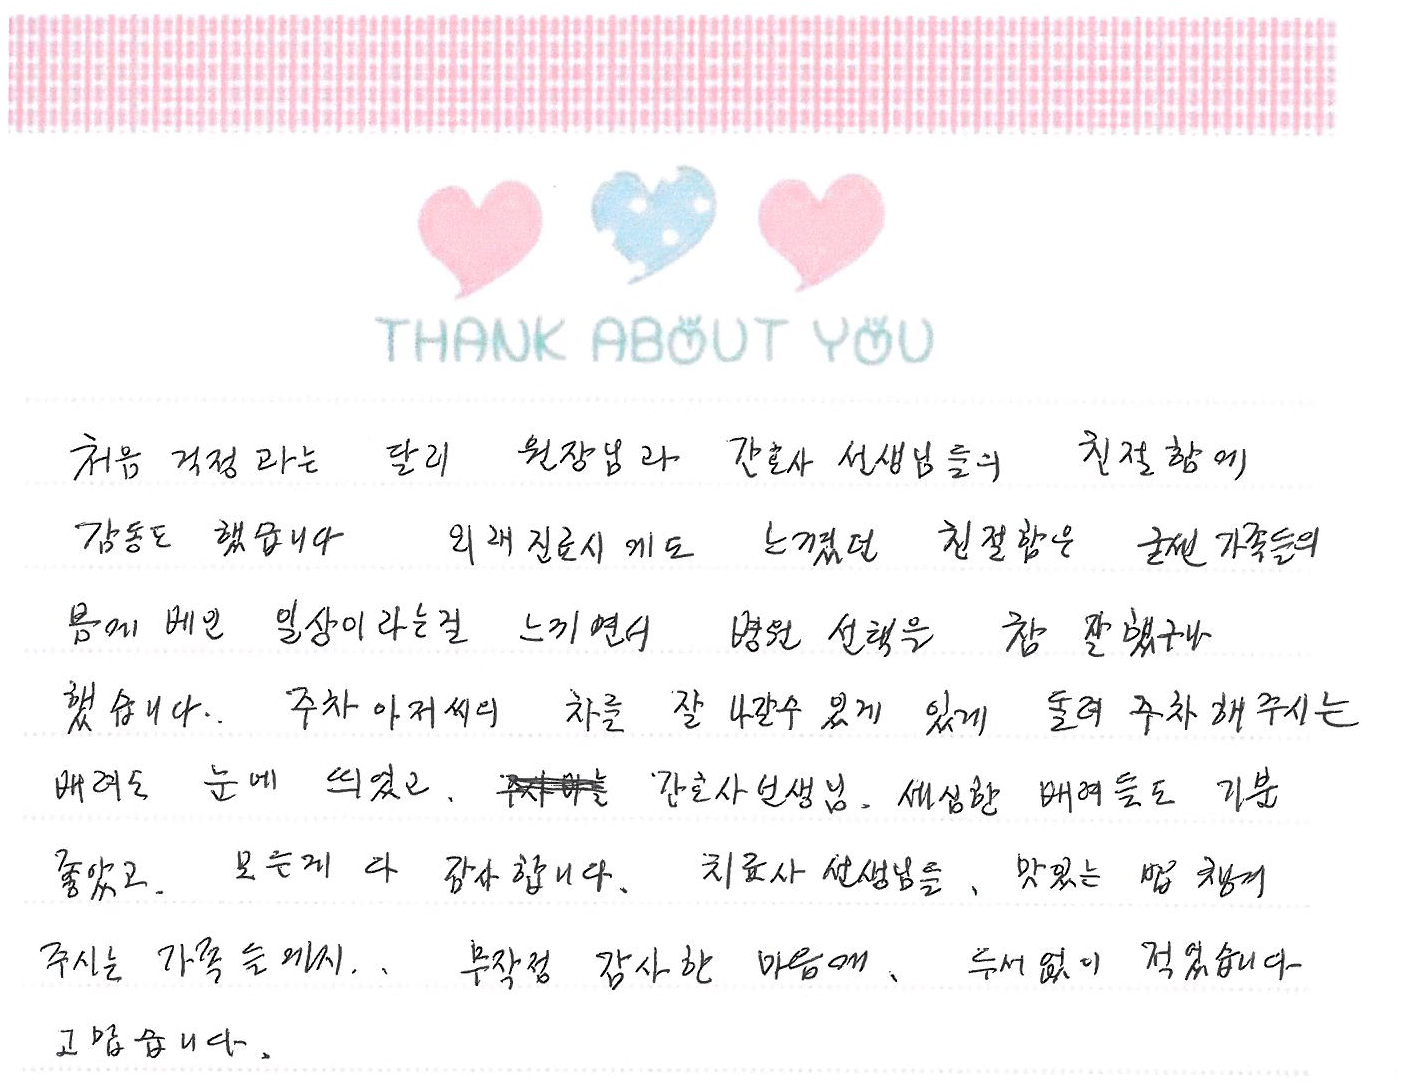 THANK ABOUT YOU
처음 걱정과는 달리 원장님과 간호사 선생님들의 친절함에
감동도 했습니다 외래진료시에도 느꼈던 친절함은 굳센가족들의
몸에 베인 일상이라는걸 느끼면서 병원 선택을 참 잘했구나
했습니다.. 주차아저씨의 차를 잘 나갈수 있게 있게 돌려 주차해주시는
배려도 눈에 띄였고. 간호사선생님. 세심한 배려들도 기분
좋았고. 모든게 다 감사합니다. 치료사 선생님들, 맛있는 밥 챙겨
주시는 가족들에게.. 무작정 감사한 마음에, 두서없이 적었습니다
고맙습니다.